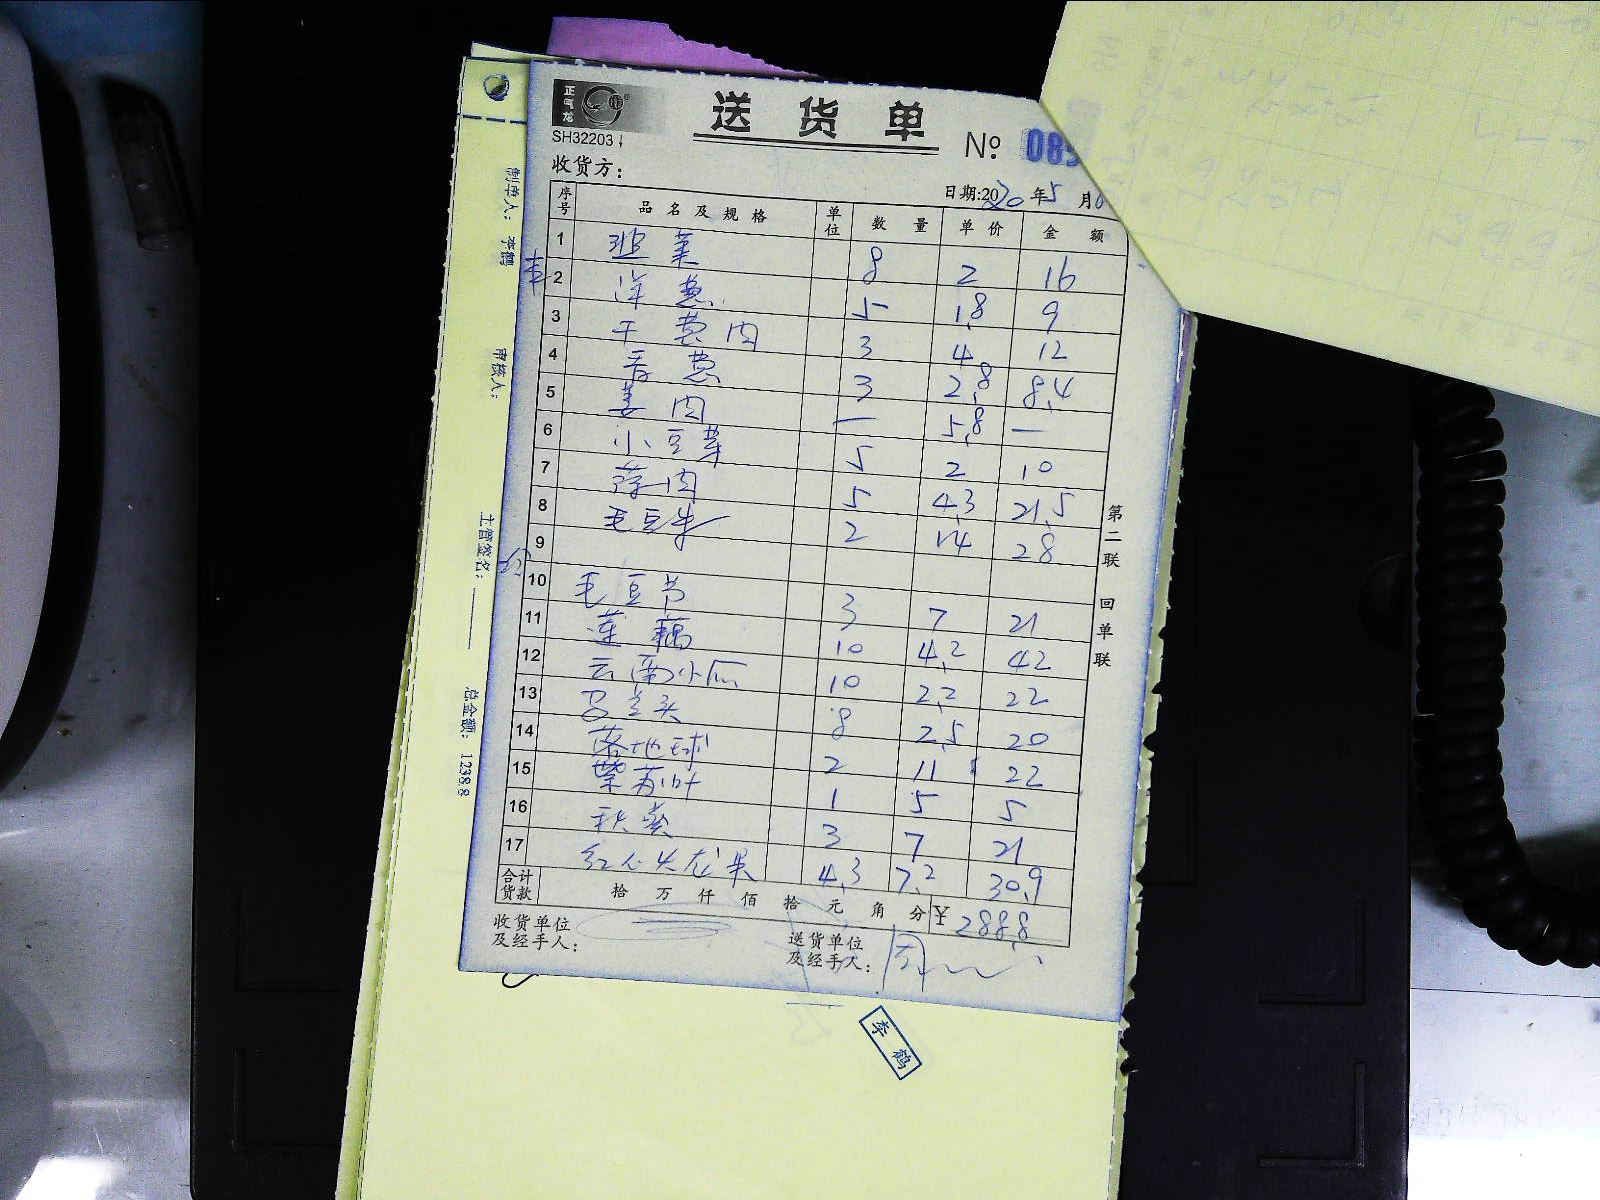 正气龙
送货单
SH32203
No 089
收货方：
日期:2020年5月
序号 品名及规格 单位 数量 单价 金额
1 韭菜 8 2 16
2 洋葱 5 1.8 9
3 干葱肉 3 4 12
4 香葱 3 2.8 8.4
5 姜肉 — 5.8 —
6 小豆芽 5 2 10
7 蒜肉 5 4.3 21.5
8 毛豆米 2 14 28
9
10 毛豆节 3 7 21
11 莲藕 10 4.2 42
12 云南小瓜 10 2.2 22
13 马兰头 8 2.5 20
14 落地球 2 11 22
15 紫苏叶 1 5 5
16 秋葵 3 7 21
17 红心火龙果 4.3 7.2 30.9
合计货款 拾 万 仟 佰 拾 元 角 分 ¥ 288.8
收货单位及经手人：
送货单位及经手人：
第二联 回单联
制单人： 李鹤
审核人：
主管签名：
总金额： 1238.8
李鹤